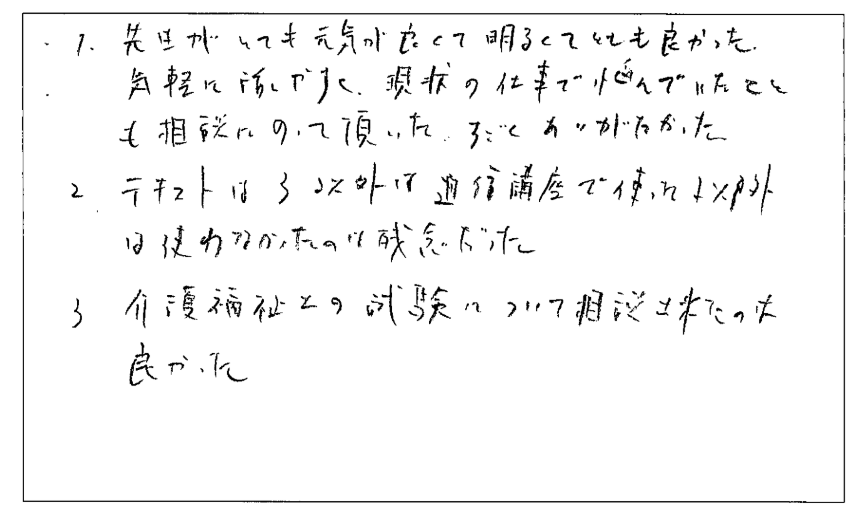 1. 先生がとても元気が良くて明るくてとても良かった。
気軽に話しやすく、現状の仕事で悩んでいたこと
も相談にのって頂いた。すごくありがたかった
2. テキストは3 以外は通信講座で使った以外
は使わなかったのは残念だった
3 介護福祉士の試験について相談出来たのは
良かった